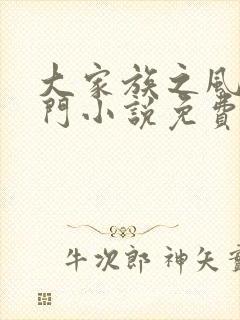 大家族之風
門小說免費
牛次郎 神矢